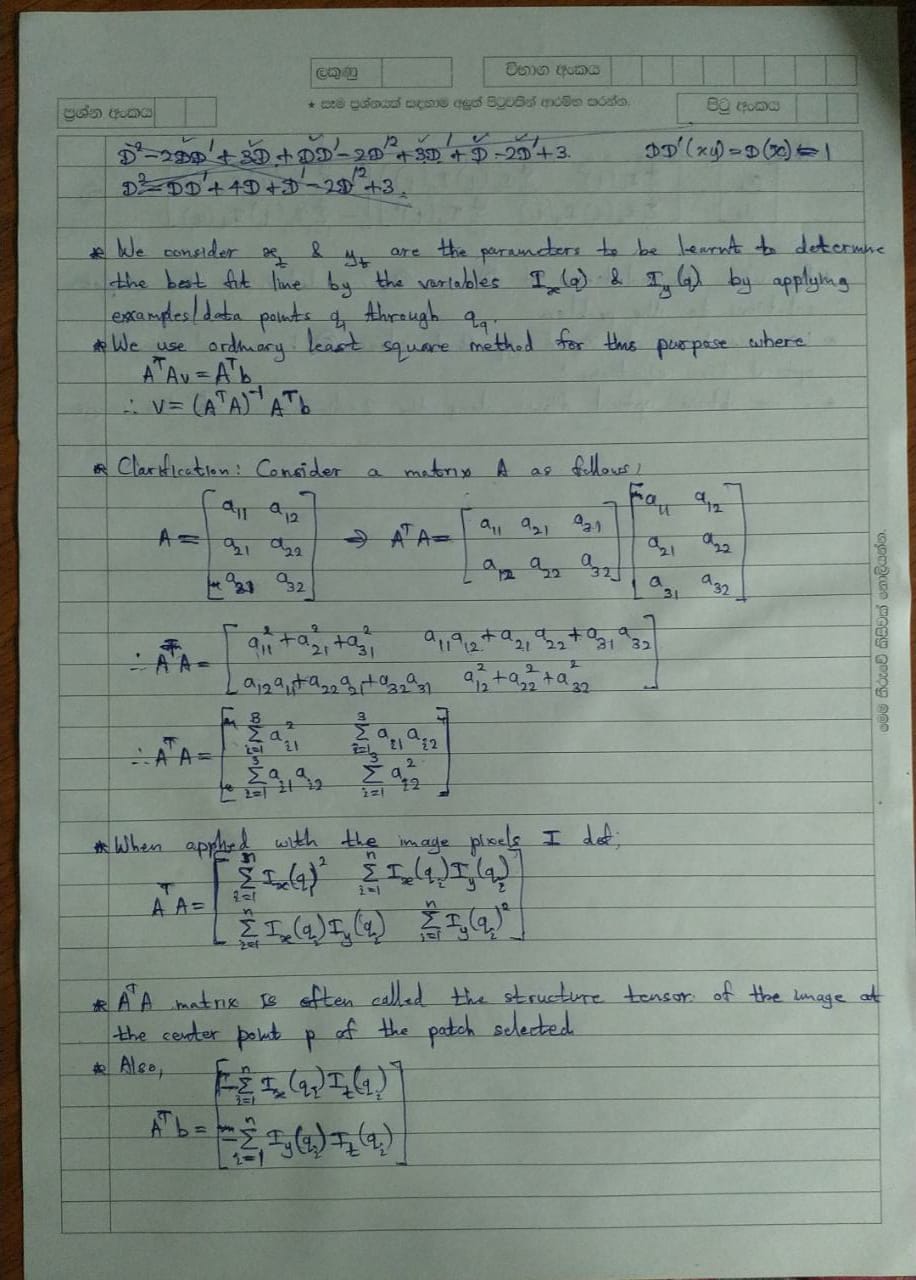 ලකුණු
විභාග අංකය
ප්‍රශ්න අංකය
★ සෑම ප්‍රශ්නයක් සඳහාම අලුත් පිටුවකින් ආරම්භ කරන්න.
පිටු අංකය
D² - 2DD' + 3D + DD' - 2D'² + 3D' + D - 2D' + 3. DD'(xy) = D(x) = 1
D² - DD' + 4D + D' - 2D'² + 3.
* We consider x_t & y_t are the parameters to be learnt to determine
the best fit line by the variables I_x(q) & I_y(q) by applying
examples/data points q_1 through q_9.
* We use ordinary least square method for this purpose where
AᵀAv = Aᵀb
∴ v = (AᵀA)⁻¹ Aᵀb
* Clarification: Consider a matrix A as follows;
A = [a_11 a_12; a_21 a_22; a_31 a_32] ⇒ AᵀA = [a_11 a_21 a_31; a_12 a_22 a_32] [a_11 a_12; a_21 a_22; a_31 a_32]
∴ AᵀA = [a_11² + a_21² + a_31² a_11 a_12 + a_21 a_22 + a_31 a_32; a_12 a_11 + a_22 a_21 + a_32 a_31 a_12² + a_22² + a_32²]
∴ AᵀA = [∑_{i=1}^{3} a_i1² ∑_{i=1}^{3} a_i1 a_i2; ∑_{i=1}^{3} a_i1 a_i2 ∑_{i=1}^{3} a_i2²]
* When applied with the image pixels I def;
AᵀA = [∑_{i=1}^{n} I_x(q_i)² ∑_{i=1}^{n} I_x(q_i) I_y(q_i); ∑_{i=1}^{n} I_x(q_i) I_y(q_i) ∑_{i=1}^{n} I_y(q_i)²]
* AᵀA matrix is often called the structure tensor of the image at
the center point p of the patch selected
* Also,
Aᵀb = [-∑_{i=1}^{n} I_x(q_i) I_t(q_i); -∑_{i=1}^{n} I_y(q_i) I_t(q_i)]
මෙම තීරුවේ කිසිවක් නොලියන්න.